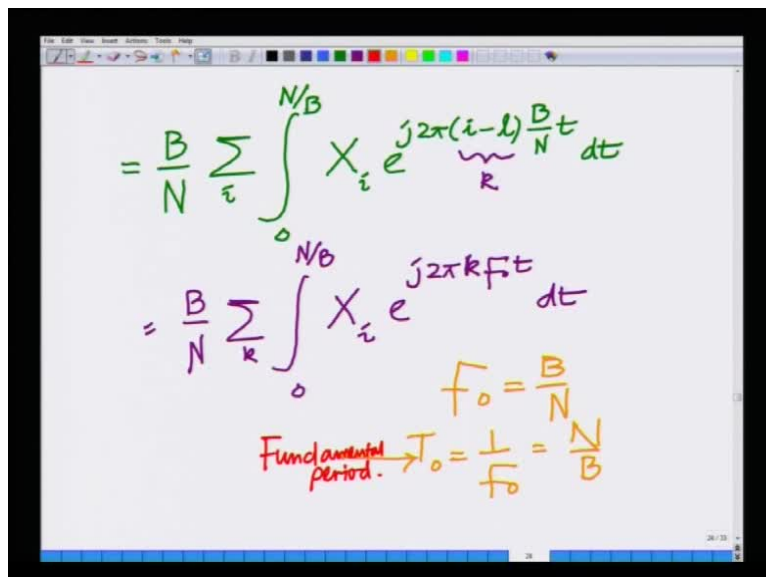 File Edit View Insert Actions Tools Help
= B/N ∑_i ∫_0^{N/B} X_i e^{j2π(i-l) B/N t} dt
k
= B/N ∑_k ∫_0^{N/B} X_i e^{j2πkF₀t} dt
F₀ = B/N
Fundamental period. → T₀ = 1/F₀ = N/B
28